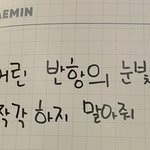 AEMIN
어린 반항의 눈빛
착각 하지 말아줘